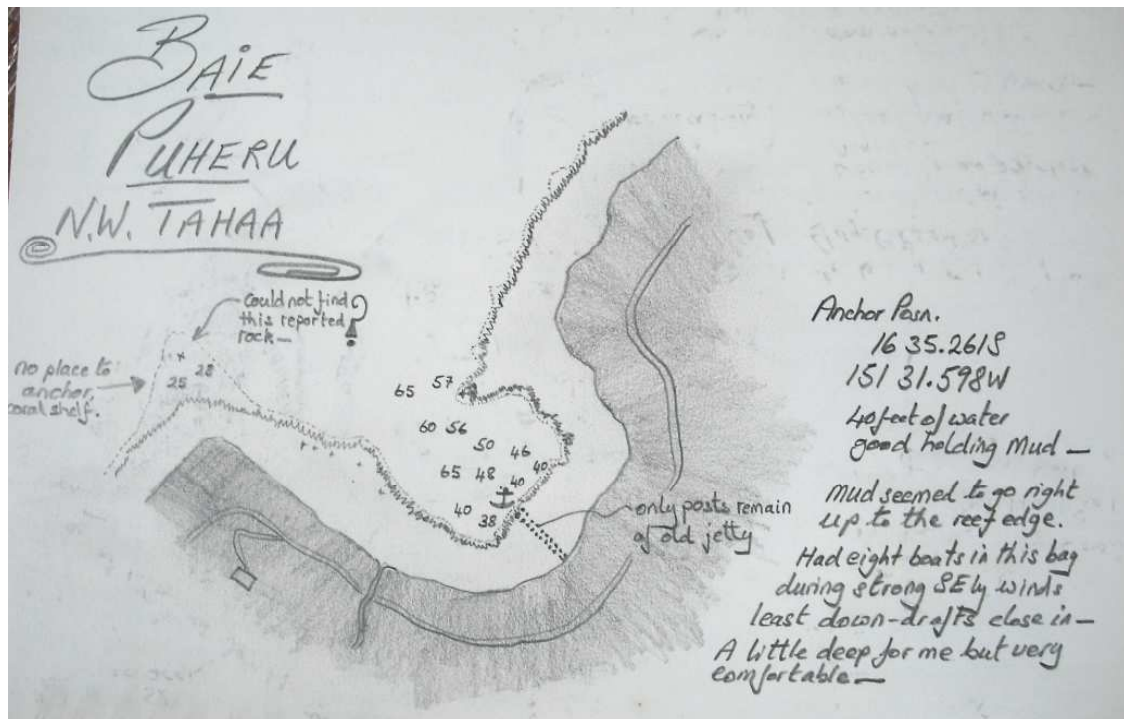 BAIE
PUHERU
N.W. TAHAA
could not find
this reported
rock —
?!
no place to
anchor,
coral shelf.
x
28
25
65 57
60 56
50
46
65 48 40
40
40
38
only posts remain
of old jetty
Anchor Posn.
16 35.261S
151 31.598W
40 feet of water
good holding Mud —
Mud seemed to go right
up to the reef edge.
Had eight boats in this bay
during strong SEly winds
least down-drafts close in —
A little deep for me but very
comfortable —